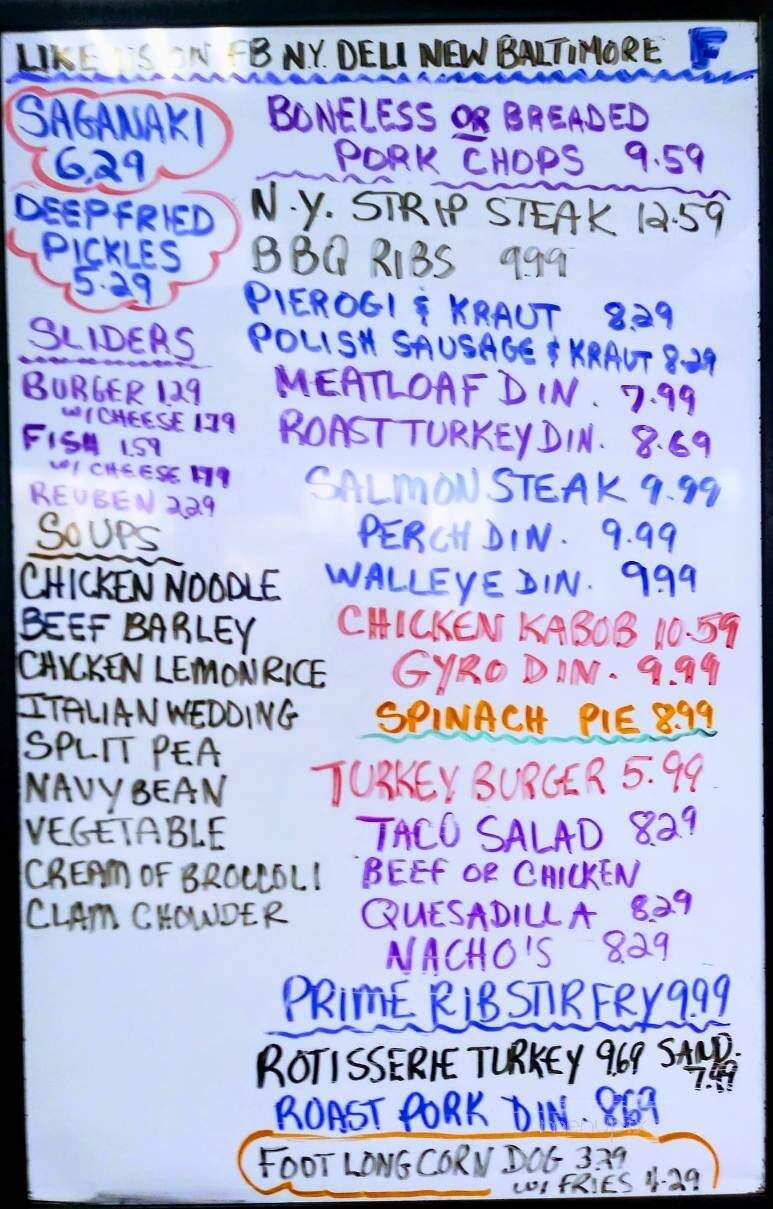 LIKE US ON FB N.Y. DELI NEW BALTIMORE F
SAGANAKI
6.29
DEEP FRIED
PICKLES
5.29
SLIDERS
BURGER 1.29
W/ CHEESE 1.79
FISH 1.59
W/ CHEESE 1.79
REUBEN 2.29
SOUPS
CHICKEN NOODLE
BEEF BARLEY
CHICKEN LEMON RICE
ITALIAN WEDDING
SPLIT PEA
NAVY BEAN
VEGETABLE
CREAM OF BROCCOLI
CLAM CHOWDER
BONELESS OR BREADED
PORK CHOPS 9.59
N.Y. STRIP STEAK 12.59
BBQ RIBS 9.99
PIEROGI & KRAUT 8.29
POLISH SAUSAGE & KRAUT 8.29
MEATLOAF DIN. 7.99
ROAST TURKEY DIN. 8.69
SALMON STEAK 9.99
PERCH DIN. 9.99
WALLEYE DIN. 9.99
CHICKEN KABOB 10.59
GYRO DIN. 9.99
SPINACH PIE 8.99
TURKEY BURGER 5.99
TACO SALAD 8.29
BEEF OR CHICKEN
QUESADILLA 8.29
NACHO'S 8.29
PRIME RIB STIR FRY 9.99
ROTISSERIE TURKEY 9.69 SAND.
7.49
ROAST PORK DIN. 8.69
FOOT LONG CORN DOG 3.29
W/ FRIES 4.29